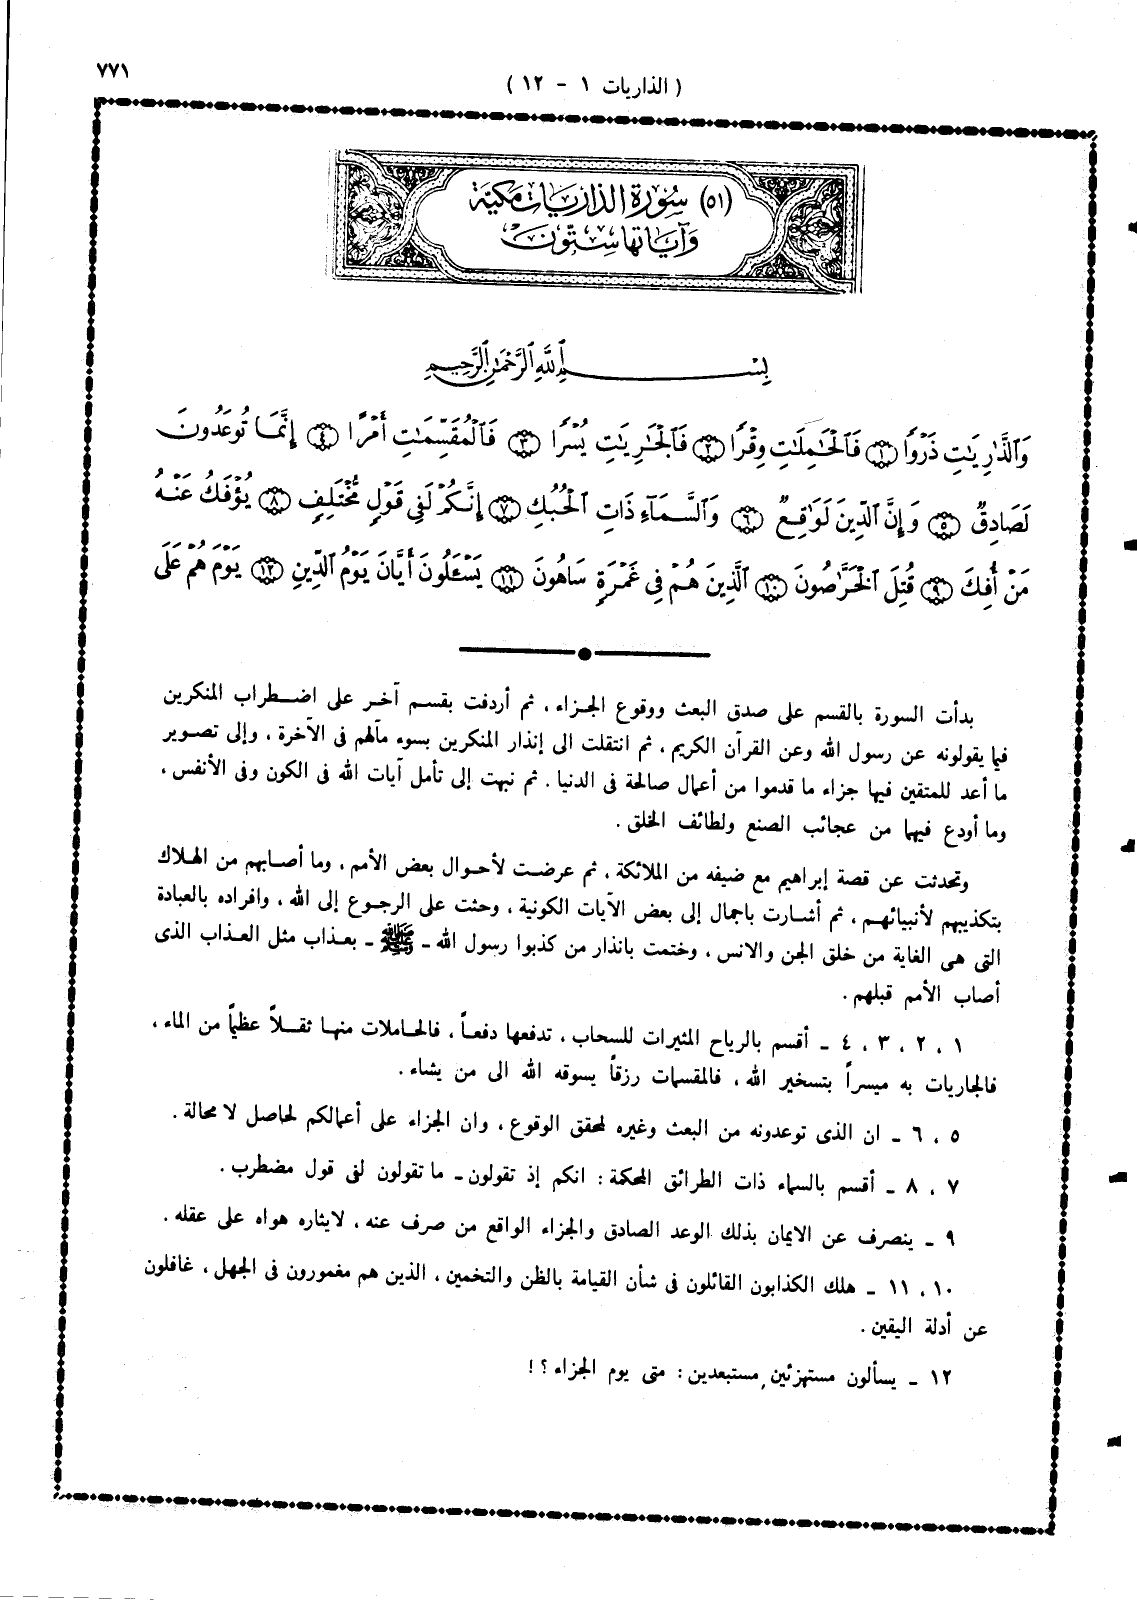 ٧٧١
( الذاريات ١ - ١٢ )
(٥١) سُورَة الذارِيَات مَكيَّة
وَآيَاتهَا سِتُّونَ
بِسْمِ اللَّهِ الرَّحْمَٰنِ الرَّحِيمِ
وَٱلذَّٰرِيَٰتِ ذَرْوًا ١ فَٱلْحَٰمِلَٰتِ وِقْرًا ٢ فَٱلْجَٰرِيَٰتِ يُسْرًا ٣ فَٱلْمُقَسِّمَٰتِ أَمْرًا ٤ إِنَّمَا تُوعَدُونَ
لَصَادِقٌ ٥ وَإِنَّ ٱلدِّينَ لَوَٰقِعٌ ٦ وَٱلسَّمَآءِ ذَاتِ ٱلْحُبُكِ ٧ إِنَّكُمْ لَفِى قَوْلٍ مُّخْتَلِفٍ ٨ يُؤْفَكُ عَنْهُ
مَنْ أُفِكَ ٩ قُتِلَ ٱلْخَرَّٰصُونَ ١٠ ٱلَّذِينَ هُمْ فِى غَمْرَةٍ سَاهُونَ ١١ يَسْـَٔلُونَ أَيَّانَ يَوْمُ ٱلدِّينِ ١٢ يَوْمَ هُمْ عَلَى
بدأت السورة بالقسم على صدق البعث ووقوع الجزاء ، ثم أردفت بقسم آخر على اضطراب المنكرين
فيما يقولونه عن رسول الله وعن القرآن الكريم ، ثم انتقلت الى إنذار المنكرين بسوء مآلهم فى الآخرة ، وإلى تصوير
ما أعد للمتقين فيها جزاء ما قدموا من أعمال صالحة فى الدنيا . ثم نبهت إلى تأمل آيات الله فى الكون وفى الأنفس ،
وما أودع فيهما من عجائب الصنع ولطائف الخلق .
وتحدثت عن قصة إبراهيم مع ضيفه من الملائكة ، ثم عرضت لأحوال بعض الأمم ، وما أصابهم من الهلاك
بتكذيبهم لأنبيائهم ، ثم أشارت باجمال إلى بعض الآيات الكونية ، وحثت على الرجوع إلى الله ، وافراده بالعبادة
التى هى الغاية من خلق الجن والانس ، وختمت بانذار من كذبوا رسول الله ـ ﷺ ـ بعذاب مثل العذاب الذى
أصاب الأمم قبلهم .
١ ، ٢ ، ٣ ، ٤ ـ أقسم بالرياح المثيرات للسحاب ، تدفعها دفعاً ، فالحاملات منها ثقلاً عظيماً من الماء ،
فالجاريات به ميسراً بتسخير الله ، فالمقسمات رزقاً يسوقه الله الى من يشاء .
٥ ، ٦ ـ ان الذى توعدونه من البعث وغيره لمحقق الوقوع ، وان الجزاء على أعمالكم لحاصل لا محالة .
٧ ، ٨ ـ أقسم بالسماء ذات الطرائق المحكمة : انكم إذ تقولون ـ ما تقولون لفى قول مضطرب .
٩ ـ ينصرف عن الايمان بذلك الوعد الصادق والجزاء الواقع من صرف عنه ، لايثاره هواه على عقله .
١٠ ، ١١ ـ هلك الكذابون القائلون فى شأن القيامة بالظن والتخمين ، الذين هم مغمورون فى الجهل ، غافلون
عن أدلة اليقين .
١٢ ـ يسألون مستهزئين مستبعدين : متى يوم الجزاء ؟ !